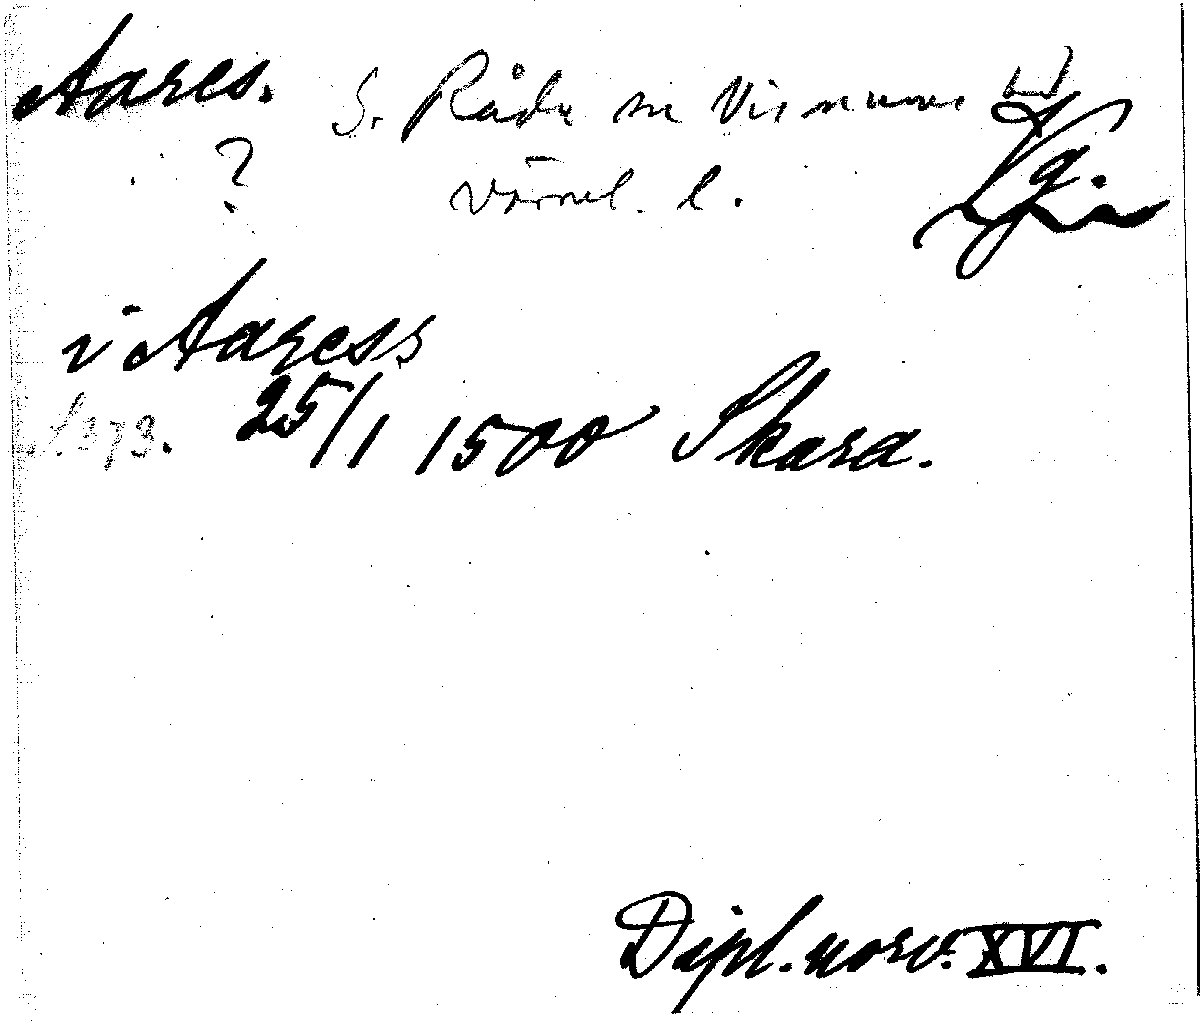 Aares. S. Råda sn Visnums hd
? Värml. l. Vg.
i Aaress
s. 373. 25/1 1500 Skara.
Dipl. norv. XVI.